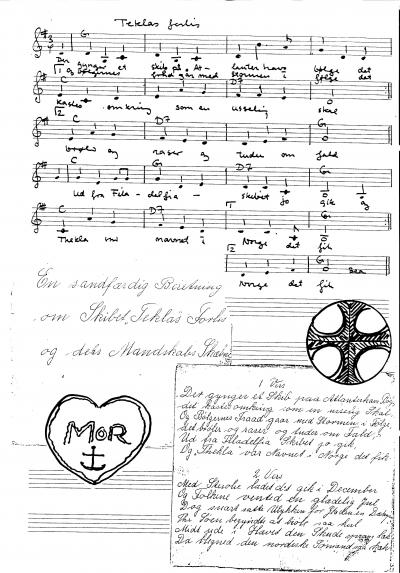 Teklas forlis
G
Der gynger et skib på Atlanterhavs bølge det
1 og bølgernes fråd går med stormen i følge det
D7 G
kastes omkring som en usselig skal
12
C D7 G
og raser og tuder om fald
C G D7 G
Ud fra Filadelfia skibet jo gik og
C D7 11 G
Thekla var navnet i Norge det fik
12 G
Norge det fik
En sandfærdig Beretning
om Skibet Teklas Forlis
og dets Mandskabs Skæbne
MOR
1 Vers
Det gynger et Skib paa Atlanterhavs
det kastes omkring som en usselig Skal
Og Bølgernes Fraad gaar med Stormen i Følge
det og raser og tuder om Fald
Ud fra Filadelfia Skibet jo gik,
Og Thekla var Navnet i Norge det fik
2. Vers
Med ladet det gik i December
Og Folkene vented en glædelig Jul
Dog snart satte Ulykken for Glæden en
Thi Søen begyndte at saa hul
Midt ude i Havet den Skude sprang læk
Da blegned den nordiske Sømand